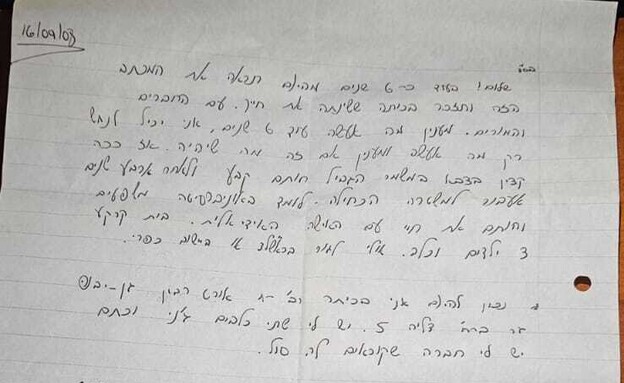 16/09/08
בס"ד
שלום! בעוד כ- 6 שנים מהיום תראה את המכתב
הזה ותזכר בכיתה ששינתה את חייך. עם החברים
והמורים. מענין מה אעשה עוד 6 שנים, אני יכול לנחש
רק מה אעשה ומענין אם זה מה שיהיה. אז ככה
קצין בצבא במשמר הגבול חותם קבע ולאחר ארבע שנים
אעבור למשטרה הכחולה. לומד באוניברסיטה משפטים
וחותם את חיי עם האישה האידיאלית. בית קרקע
3 ילדים וכלב. אולי לגור באשלצ או בישוב כפרי.
נכון להיום אני בכיתה רב'-ח אורט רבין גן-יבנה
גר ברח' דליה 5. יש לי שתי כלבים ג'ני וכתם
יש לי חברה שקוראים לה סול.